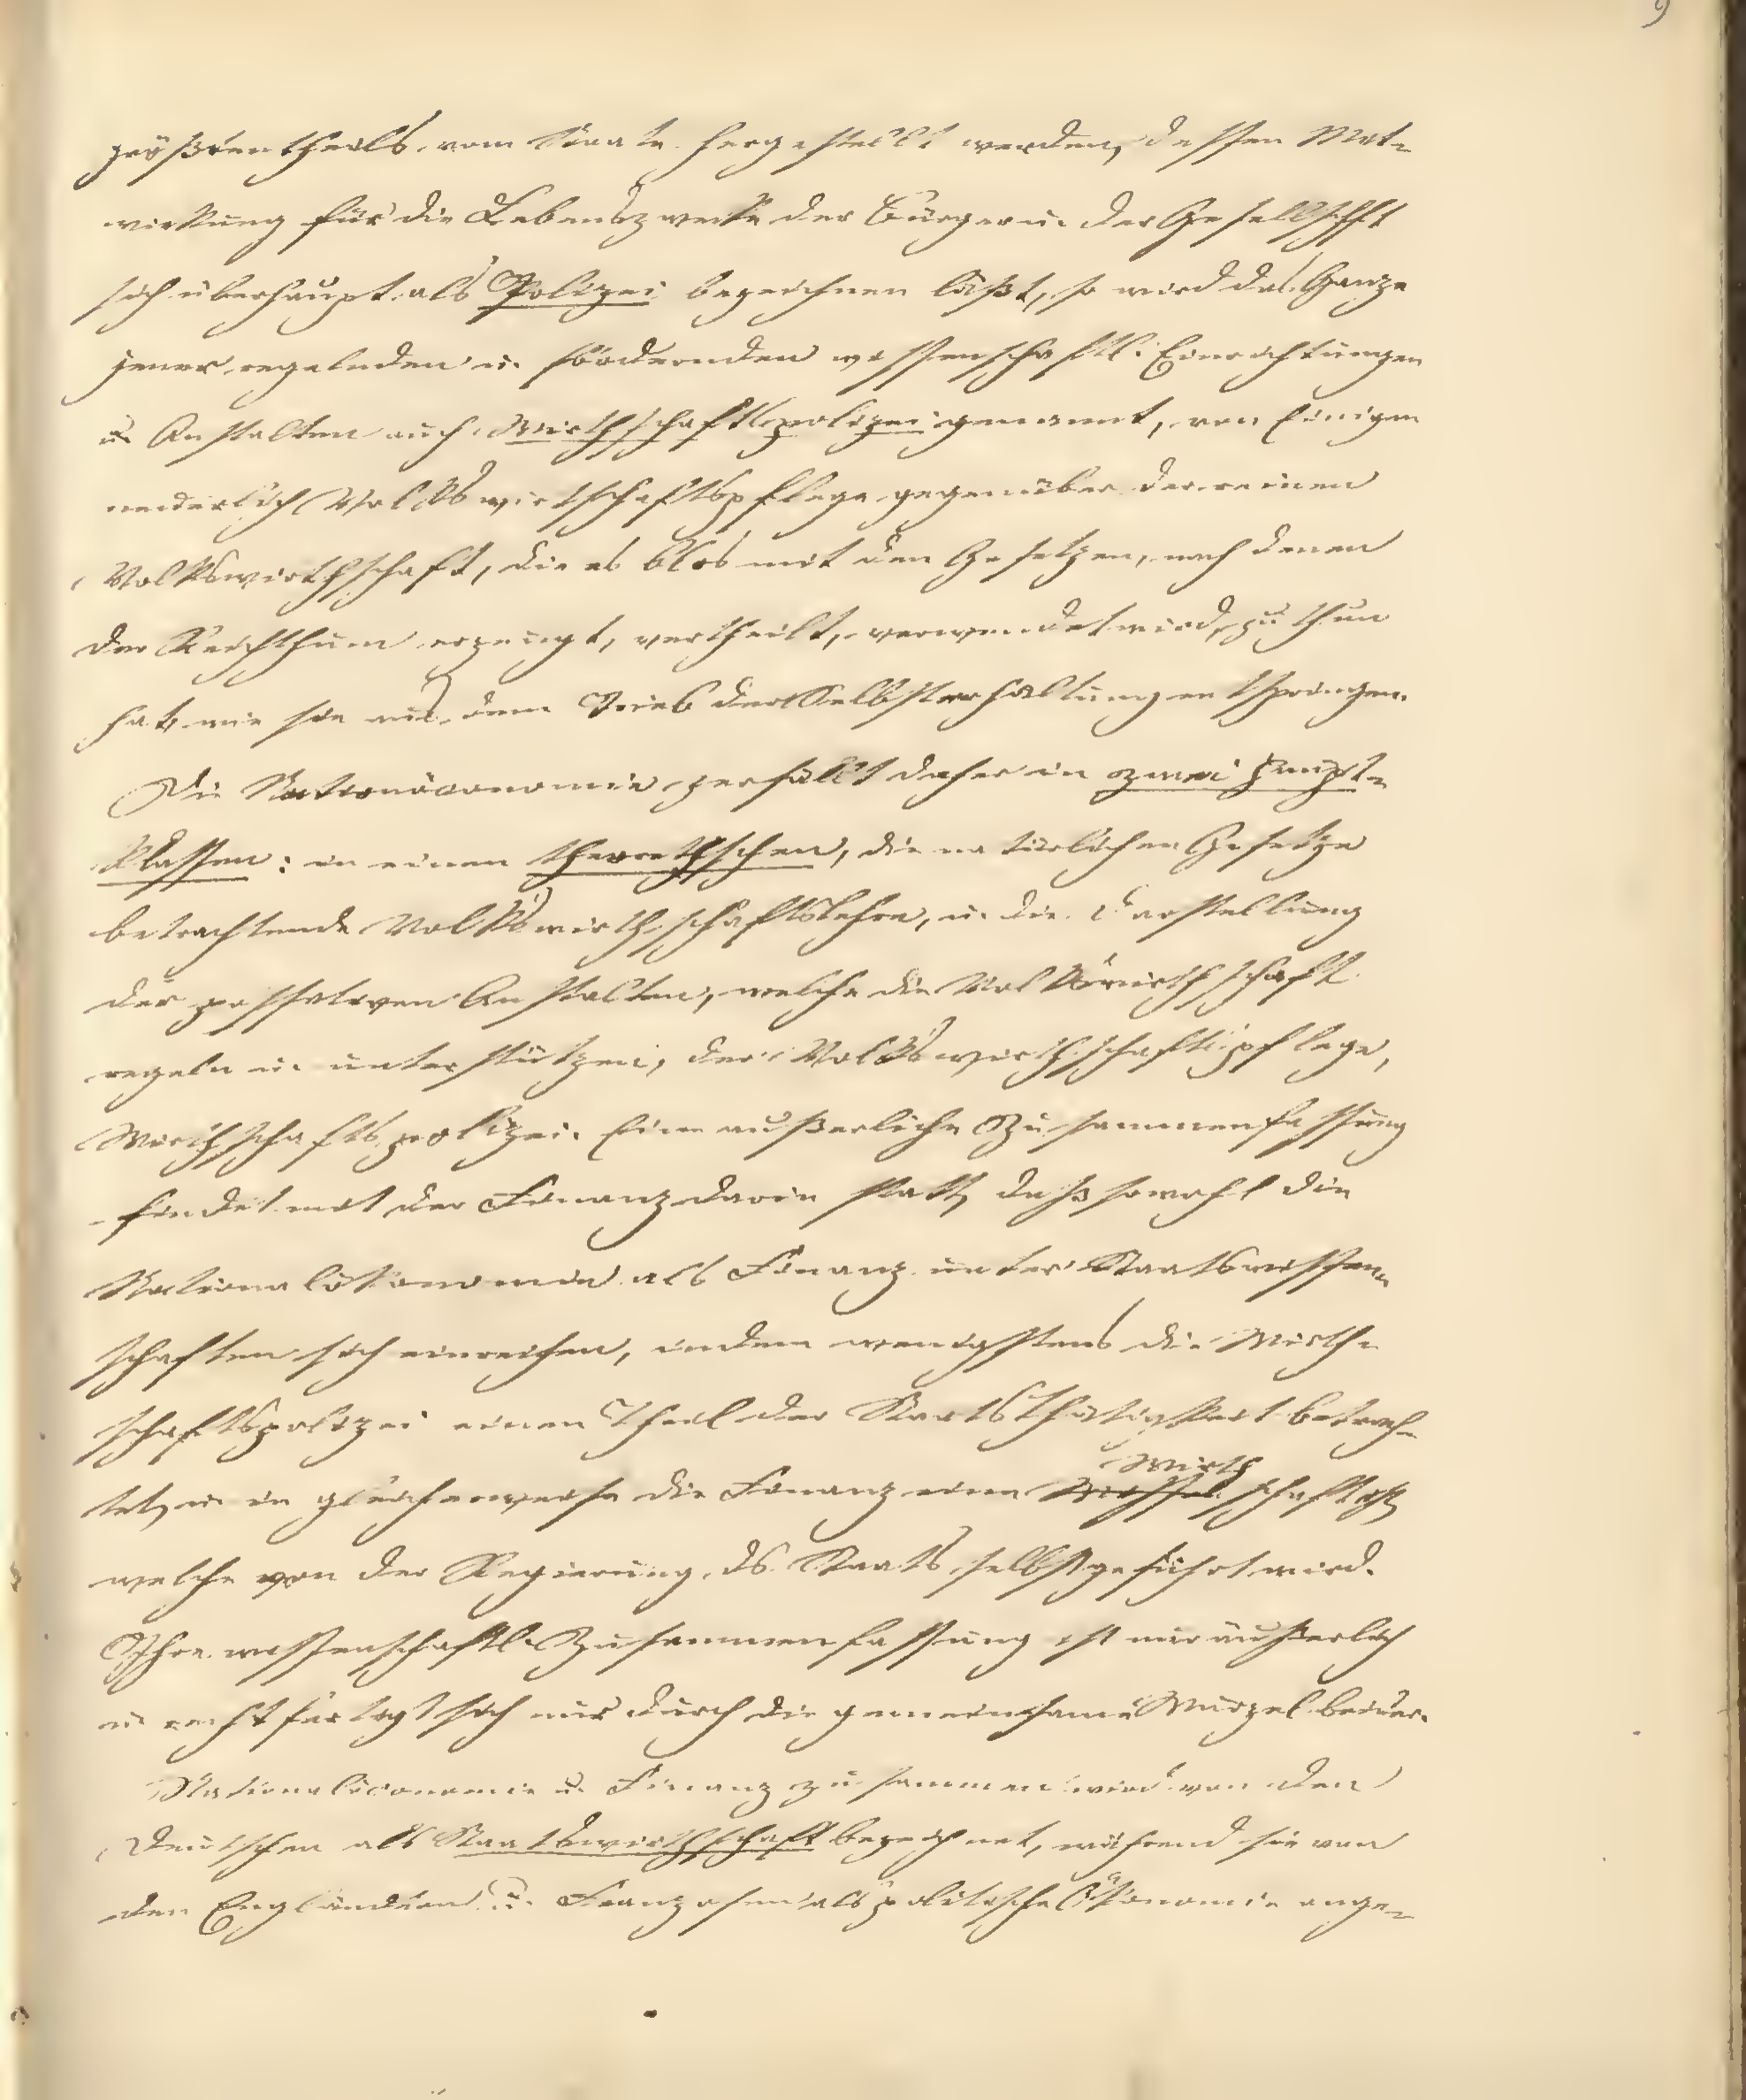 9
größtentheils vom Staate hergestellt werden, dessen Mit-
wirkung für die Lebenszwecke der Bürger u. der Gesellschft
sich überhaupt als Polizei bezeichnen läßt, so wird das Ganze
jener regelnden u. fördernden wissenschaftl. Einrichtungen
u. Anstalten auch Wirthschaftspolizei genannt, von Einigen
neuerlich Volkswirtschaftspflege gegenüber der reinen
Volkswirthschaft, die es blos mit den Gesetzen, nach denen
der Reichthum erzeugt, vertheilt, verwendet wird, zu thun
hat, wie sie aus dem Trieb der Selbsterhaltung entspringen.
Die Nationöconomie zerfällt daher in zwei Haupt-
klassen: in einen theorethischen, die natürlichen Gesetze
betrachtende Volkswirthschaftslehre, u. die Darstellung
der possitiven Anstalten, welche die Volkswirthschaft
regeln u. unterstützen, der Volkswirthschaftspflege,
Wirthschaftspolizei. Eine äußerliche Zusammenfassung
findet mit der Finanz darin statt, daß sowohl die
Nationalökonomie als Finanz unter Staatswissen-
schaften sich einreihen, indem wenigstens die Wirth-
schaftspolizei einen Theil der Staatsthätigkeit betrach-
tet, u. in gleicherweise die Finanz eine Wirthschaft ist,
welche von der Regierung ds Staats selbst geführt wird.
Ihre wissenschaftl. Zusammenfassung ist nur äußerlich
u. rechtfertigt sich nur durch die gemeinsame Wurzel beider.
Nationalöconomie u. Finanz zusammen wird von den
Deutschen als Staatswirthschaft bezeichnet, während sie von
den Engländern u. Franzosen als politische Ökonomie ange-